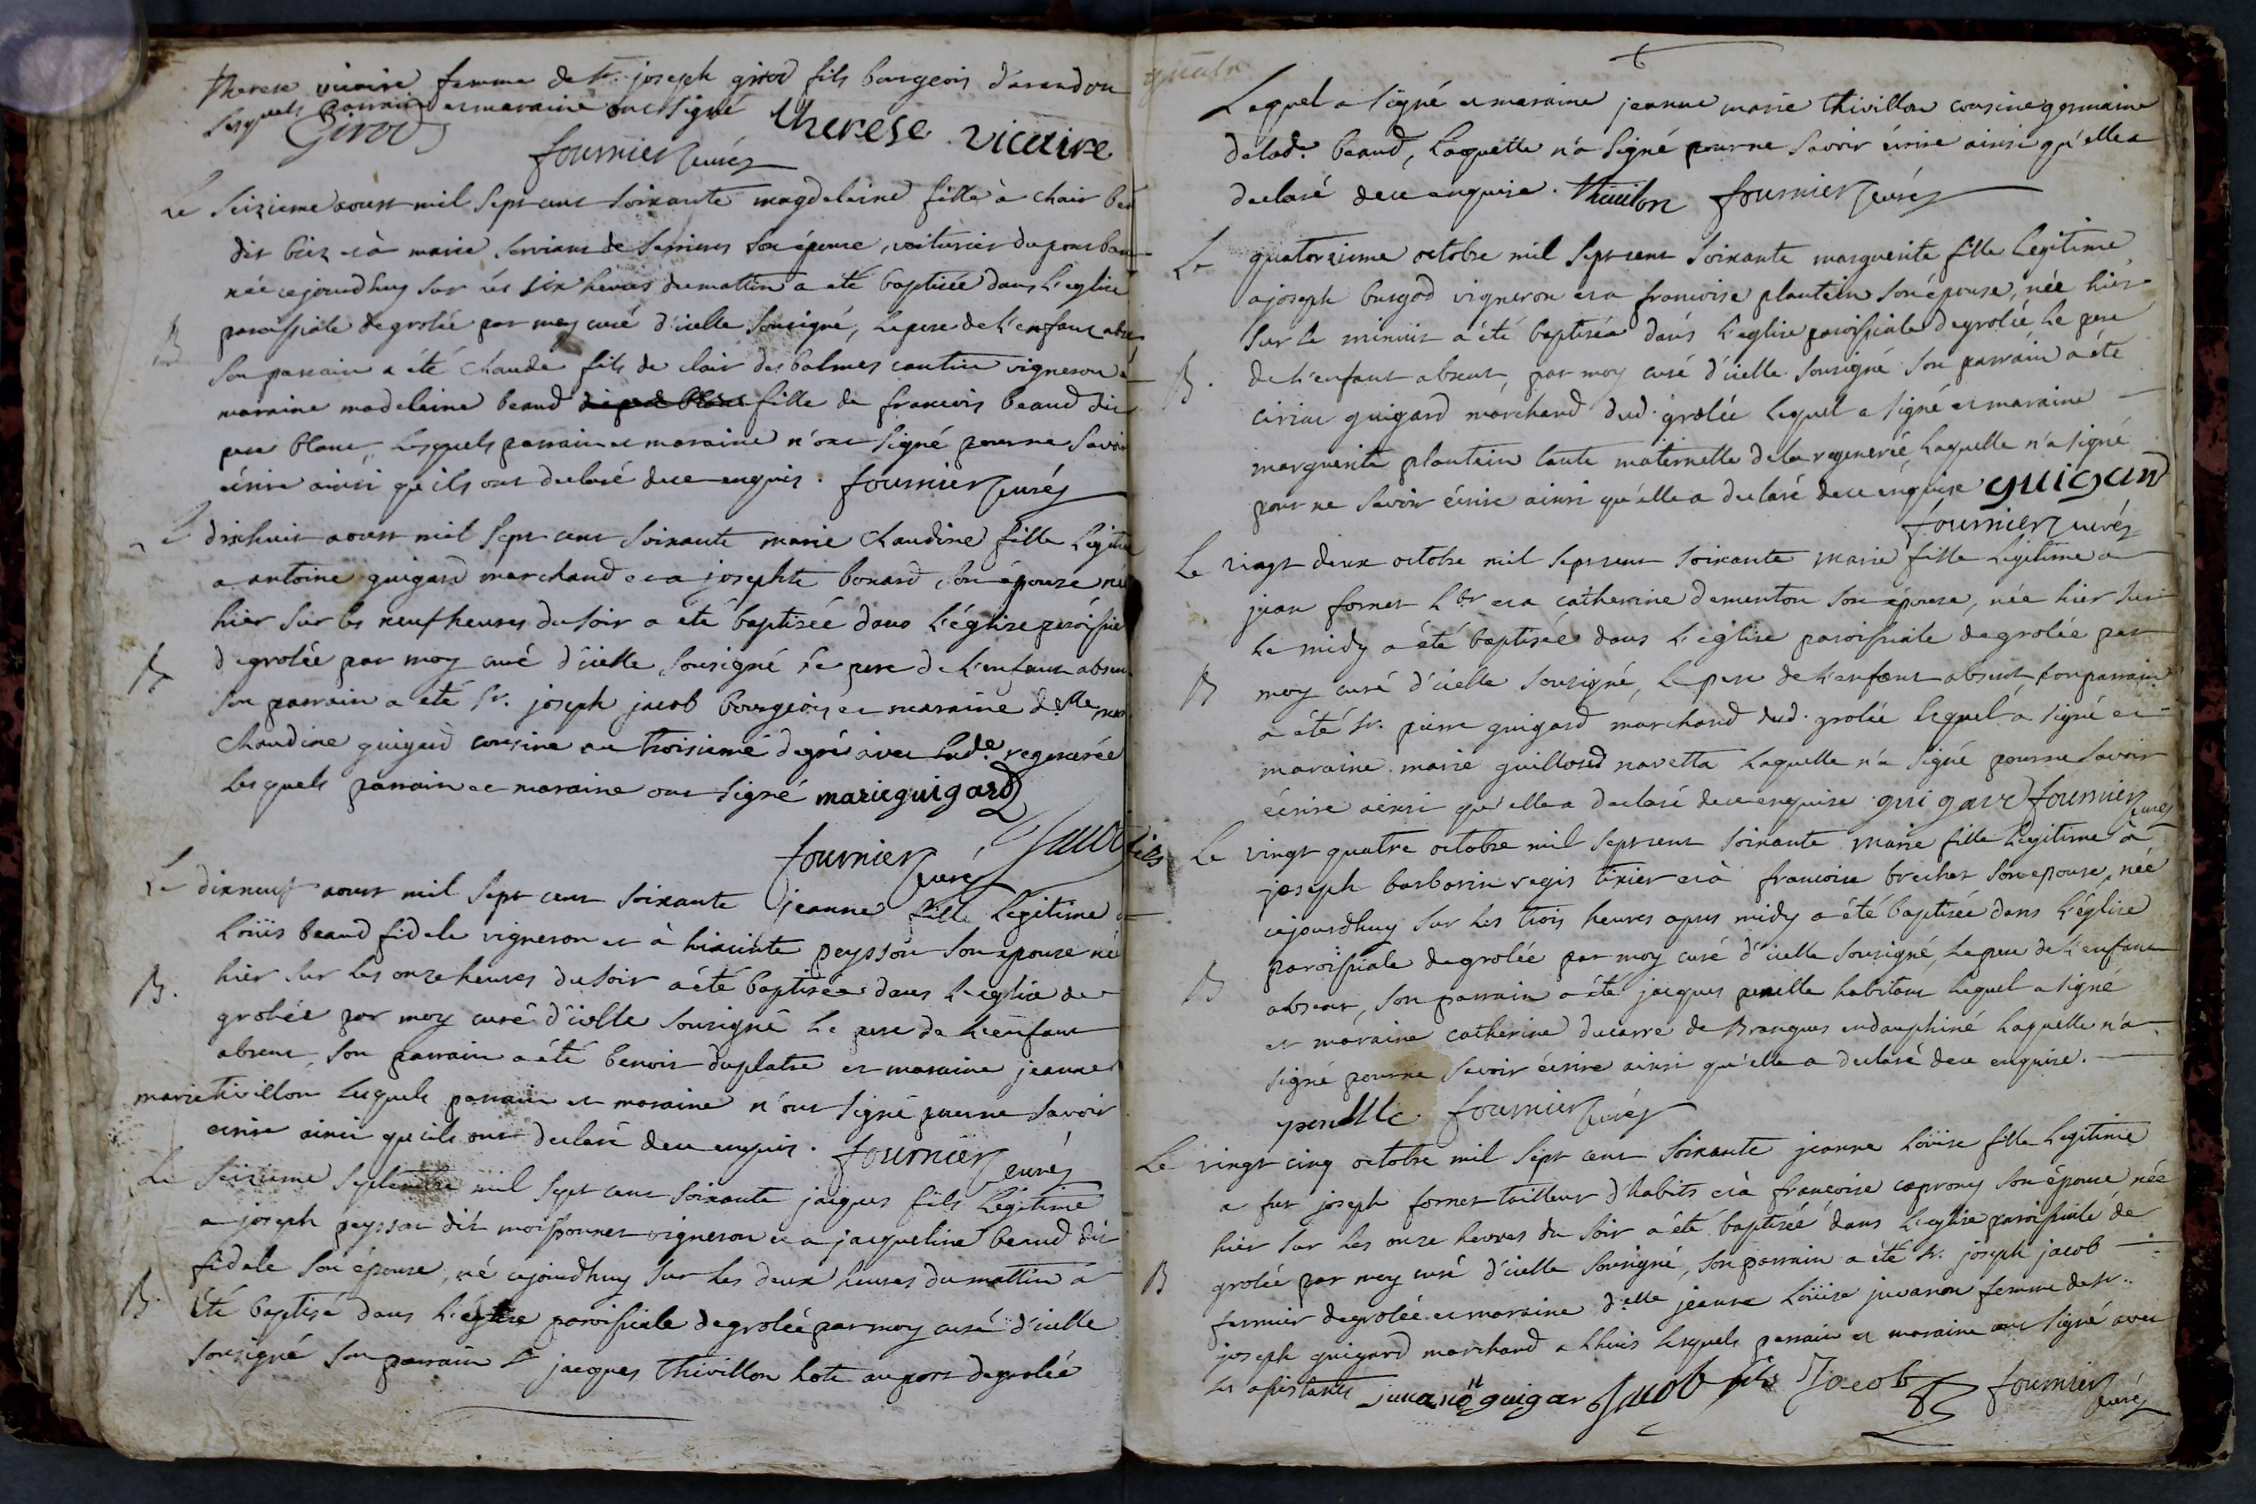 therese vicaire femme de Sr. joseph girod fils bourgeois d'arandon
lesquels parrain et maraine ont signé therese vicaire
Girod
fournier curéz
Le seizieme aoust mil sept cent soixante magdelaine fille à clair
dit biez et à marie servant de serrieres son épouse, voiturier du pont
née cejourdhuy sur les six heures du mattin a été baptisée dans l'eglise
B paroissiale de grolée par moy curé d'icelle sousigné, le pere de l'enfant
son parrain a été claude fils de clair des balmes cantin vigneron
marraine madelaine beaud fille de francois beaud dit
blanc, lesquels parrain et maraine n'ont signé pour ne savoir
écrire ainsi qu'ils ont declaré de ce enquis. fournier curéz
Le dixhuit aoust mil sept cent soixante marie claudine fille
a antoine guigard marchand et a josephte bonard son épouse née
hier sur les neuf heures du soir a été baptisée dans l'église
B de grolée par moy curé d'icelle sousigné le pere de l'enfant
son parrain a été Sr. joseph jacob bourgeois et maraine delle
claudine guigard cousine au troisieme degré avec lade. regenerée
lesquels parrain et maraine ont signé marieguigard
fournier curéz jacob fils
Le dixneuf aoust mil sept cent soixante jeanne fille legitime a
Loüis beaud fidele vigneron et à hiacinte peysson son epouse née
B. hier sur les onze heures du soir a été baptisée dans l'eglise de
grolée par moy curé d'icelle sousigné le pere de l'enfant
absent, son parrain a été benoit duplatre et maraine jeanne
marie tivillon lesquels parrain et maraine n'ont signé pour ne savoir
écrire ainsi qu'ils ont declaré de ce enquis. fournier curéz
Le seizieme septembre mil sept cent soixante jacques fils legitime
a joseph peysson dit moissonnet vigneron et a jacqueline beaud dit
fidele son épouse, né cejourdhuy sur les deux heures du mattin a
B. été baptisé dans l'église paroissiale de grolée par moy curé d'icelle
sousigné son parrain Sr jacques thivillon hote au port de grolée
Lequel a signé et maraine jeanne marie thivillon cousine germaine
delade. beaud, laquelle n'a signé pour ne savoir écrire ainsi qu'elle a
declaré de ce enquise. thivilon fournier curéz
Le quatorzieme octobre mil sept cent soixante marguerite fille legitime
a joseph burgod vigneron et a francoise plantein son épouse, née hier
sur le minuit a été baptisée dans l'eglise paroissiale de grolée, le pere
B. de l'enfant absent, par moy curé d'icelle sousigné son parrain a été
ciriac guigard marchand dud. grolée lequel a signé et maraine
marguerite plantein tante maternelle de la regenerée, laquelle n'a signé
pour ne savoir écrire ainsi qu'elle a declaré de ce enquise guigard
fournier curéz
Le vingt deux octobre mil sept cent soixante marie fille legitime a
jean fornet et a catherine dementon son épouse, née hier sur
le midy a été baptisée dans l'église paroissiale de grolée par
B moy curé d'icelle sousigné, le pere de l'enfant absent, son parrain
a été Sr. pierre guigard marchand dud. grolée lequel a signé et
maraine marie guilloud navetta laquelle n'a signé pour ne savoir
écrire ainsi qu'elle a declaré de ce enquise. guigard fournier curéz
Le vingt quatre octobre mil sept cent soixante marie fille legitime à
joseph barbarin regis tixier et à francoise brechet son epouse, née
cejourdhuy sur les trois heures apres midy a été baptisée dans l'église
paroissiale de grolée par moy curé d'icelle sousigné, le pere de l'enfant
B absent, son parrain a été jacques penelle habitant lequel a signé
et maraine catherine ducarre de Brangues en dauphiné laquelle n'a
signé pour ne savoir écrire ainsi qu'elle a declaré de ce enquise.
penelle fournier curéz
Le vingt cinq octobre mil sept cent soixante jeanne Loüise fille legitime
a fut joseph fornet tailleur d'habits et à francoise caprony son épouse née
hier sur les onze heures du soir a été baptisée dans l'eglise paroissiale de
B grolée par moy curé d'icelle sousigné, son parrain a été Sr. joseph jacob
fermier de grolée et maraine delle jeanne Loüise juvanon femme de Sr.
joseph guigard marchand a Lhuis lesquels parrain et maraine ont signé avec
les assistants juvanon guigar jacob fils Jacob fournier curéz